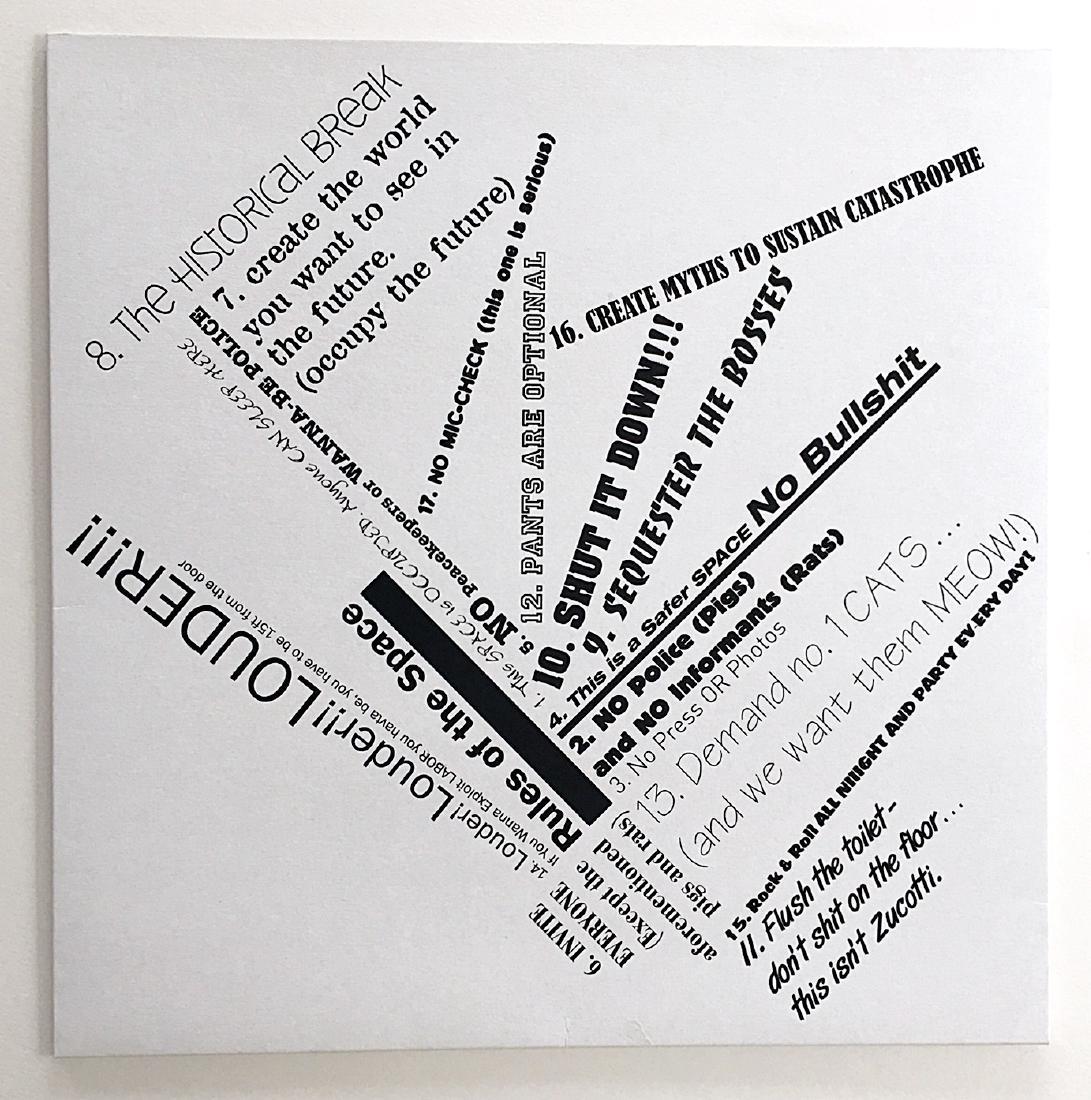 Rules of the Space
1. This SPACE is OCCUPIED. Anyone CAN SLEEP HERE
2. NO Police (Pigs)
and NO Informants (Rats)
3. No Press OR Photos
4. This is a Safer SPACE No Bullshit
5. NO Peacekeepers or WANNA-BE POLICE
6. INVITE
EVERYONE
(Except the
aforementioned
pigs and rats)
7. create the world
you want to see in
the future.
(occupy the future)
8. The HIStORICaL BReak
9. SEQUESTER THE BOSSES'
10. SHUT IT DOWN!!!
11. Flush the toilet-
don't shit on the floor...
this isn't Zucotti.
12. PANTS ARE OPTIONAL
13. Demand no. 1 CATS...
(and we want them MEOW!)
14. Louder! Louder!! LOUDER!!!
If You Wanna Exploit LABOR you havta be, you have to be 15ft from the door
15. Rock & Roll ALL NIIIGHT AND PARTY EVERY DAY!
16. CREATE MYTHS TO SUSTAIN CATASTROPHE
17. NO MIC-CHECK (this one is serious)